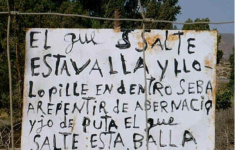 EL que SALTE
ESTA VALLA Y YO
LO PILLE EN DENTRO SE BA
A REPENTIR DE ABER NACIO
Y JO DE PUTA EL que
SALTE ESTA BALLA